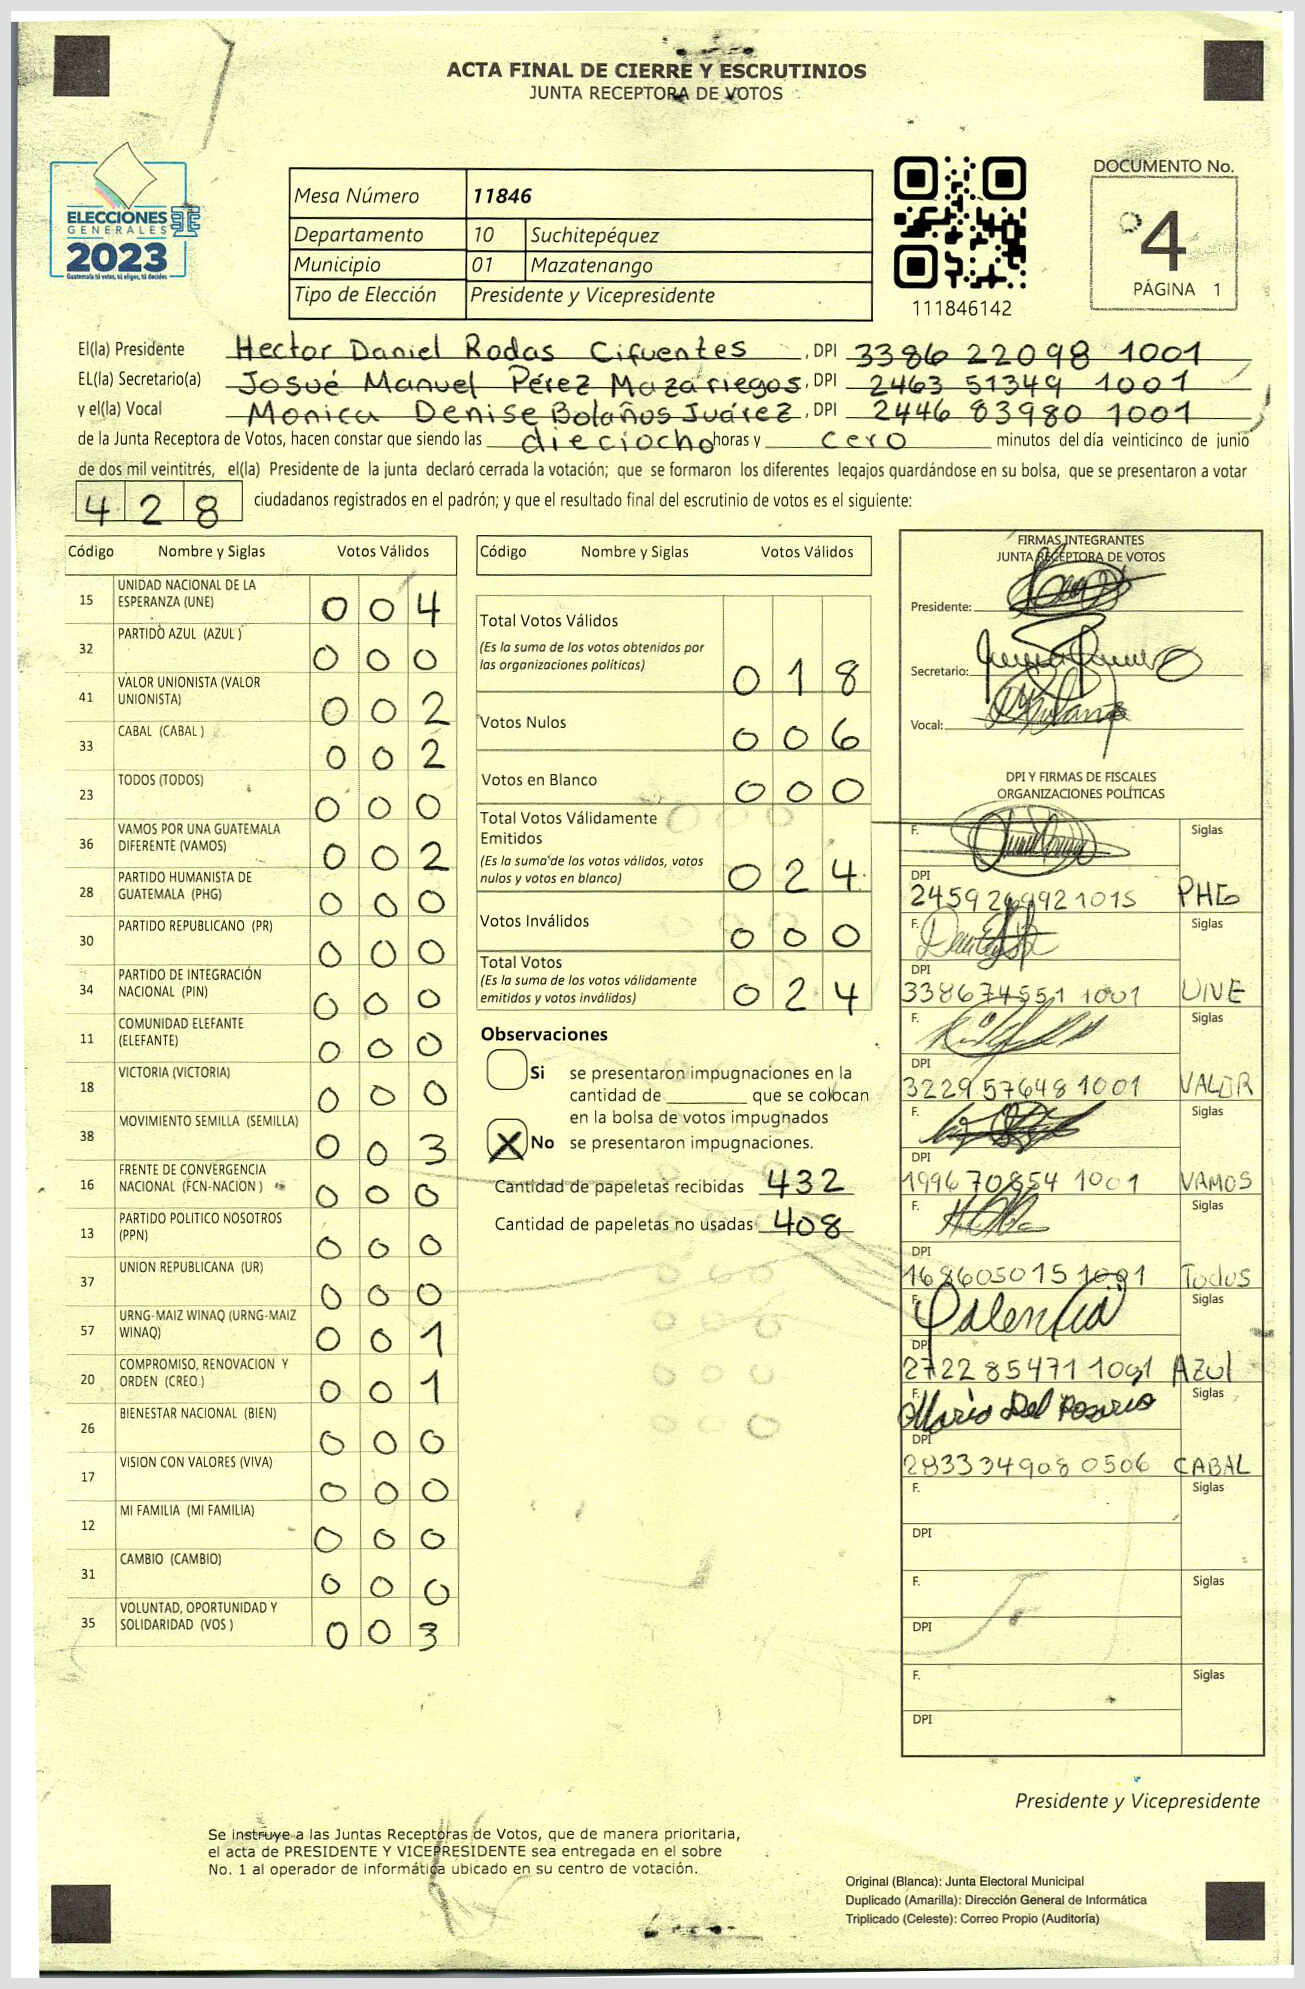 ACTA FINAL DE CIERRE Y ESCRUTINIOS
JUNTA RECEPTORA DE VOTOS
ELECCIONES
GENERALES
2023
Guatemala tú votas, tú eliges, tú decides
Mesa Número 11846
Departamento 10 Suchitepéquez
Municipio 01 Mazatenango
Tipo de Elección Presidente y Vicepresidente
111846142
DOCUMENTO No.
4
PÁGINA 1
El(la) Presidente Hector Daniel Rodas Cifuentes, DPI 3386 22098 1001
EL(la) Secretario(a) Josué Manuel Pérez Mazariegos, DPI 2463 51349 1001
y el(la) Vocal Monica Denise Bolaños Juárez, DPI 2446 83980 1001
de la Junta Receptora de Votos, hacen constar que siendo las dieciocho horas y cero minutos del día veinticinco de junio
de dos mil veintitrés, el(la) Presidente de la junta declaró cerrada la votación; que se formaron los diferentes legajos guardándose en su bolsa, que se presentaron a votar
428 ciudadanos registrados en el padrón; y que el resultado final del escrutinio de votos es el siguiente:
Código Nombre y Siglas Votos Válidos
15 UNIDAD NACIONAL DE LA ESPERANZA (UNE) 004
32 PARTIDO AZUL (AZUL ) 000
41 VALOR UNIONISTA (VALOR UNIONISTA) 002
33 CABAL (CABAL ) 002
23 TODOS (TODOS) 000
36 VAMOS POR UNA GUATEMALA DIFERENTE (VAMOS) 002
28 PARTIDO HUMANISTA DE GUATEMALA (PHG) 000
30 PARTIDO REPUBLICANO (PR) 000
34 PARTIDO DE INTEGRACIÓN NACIONAL (PIN) 000
11 COMUNIDAD ELEFANTE (ELEFANTE) 000
18 VICTORIA (VICTORIA) 000
38 MOVIMIENTO SEMILLA (SEMILLA) 003
16 FRENTE DE CONVERGENCIA NACIONAL (FCN-NACION ) 000
13 PARTIDO POLITICO NOSOTROS (PPN) 000
37 UNION REPUBLICANA (UR) 000
57 URNG-MAIZ WINAQ (URNG-MAIZ WINAQ) 001
20 COMPROMISO, RENOVACION Y ORDEN (CREO ) 001
26 BIENESTAR NACIONAL (BIEN) 000
17 VISION CON VALORES (VIVA) 000
12 MI FAMILIA (MI FAMILIA) 000
31 CAMBIO (CAMBIO) 000
35 VOLUNTAD, OPORTUNIDAD Y SOLIDARIDAD (VOS ) 003
Código Nombre y Siglas Votos Válidos
Total Votos Válidos
(Es la suma de los votos obtenidos por
las organizaciones políticas) 018
Votos Nulos 006
Votos en Blanco 000
Total Votos Válidamente
Emitidos
(Es la suma de los votos válidos, votos
nulos y votos en blanco) 024
Votos Inválidos 000
Total Votos
(Es la suma de los votos válidamente
emitidos y votos inválidos) 024
Observaciones
Si se presentaron impugnaciones en la
cantidad de ________ que se colocan
en la bolsa de votos impugnados
X No se presentaron impugnaciones.
Cantidad de papeletas recibidas 432
Cantidad de papeletas no usadas 408
FIRMAS INTEGRANTES
JUNTA RECEPTORA DE VOTOS
Presidente:
Secretario:
Vocal:
DPI Y FIRMAS DE FISCALES
ORGANIZACIONES POLÍTICAS
F. Siglas
DPI
PHG
F. Siglas
DPI
338674551 1001 UNE
F. Siglas
DPI
3229 57648 1001 VALOR
F. Siglas
DPI
1996 70854 1001 VAMOS
F. Siglas
DPI
168605015 1001 Todos
F. Palencia Siglas
DPI
2722 85471 1001 Azul
F. Mario Del Rosario Siglas
DPI
283334908 0506 CABAL
F. Siglas
DPI
F. Siglas
DPI
F. Siglas
DPI
Presidente y Vicepresidente
Se instruye a las Juntas Receptoras de Votos, que de manera prioritaria,
el acta de PRESIDENTE Y VICEPRESIDENTE sea entregada en el sobre
No. 1 al operador de informática ubicado en su centro de votación.
Original (Blanca): Junta Electoral Municipal
Duplicado (Amarilla): Dirección General de Informática
Triplicado (Celeste): Correo Propio (Auditoría)